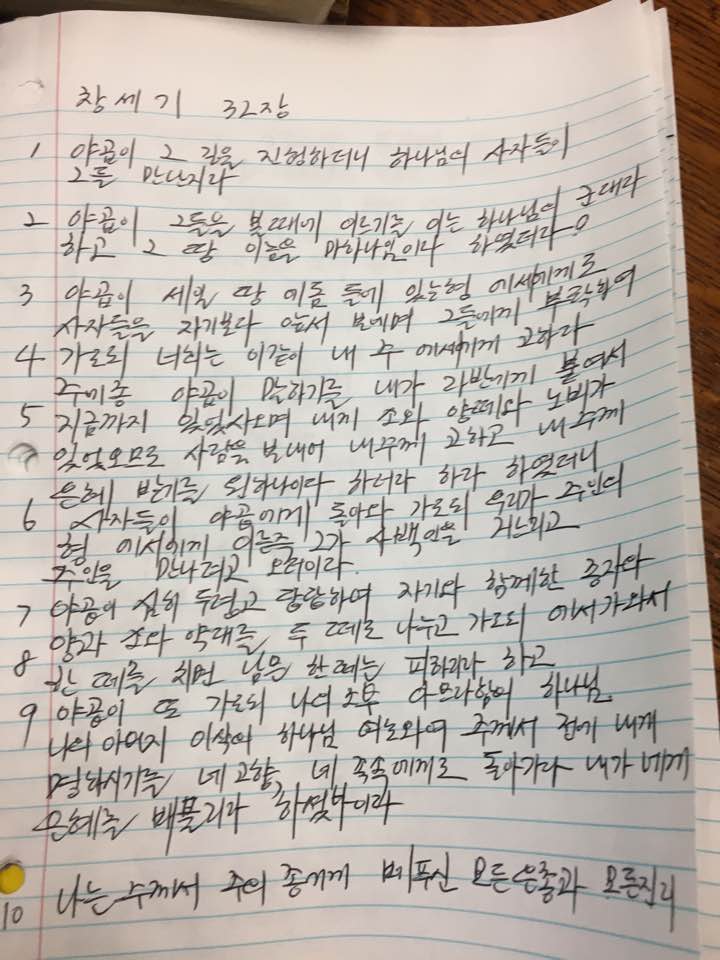 창세기 32장
1 야곱이 그 길을 진행하더니 하나님의 사자들이
그를 만난지라
2 야곱이 그들을 볼때에 이르기를 이는 하나님의 군대라
하고 그 땅 이름을 마하나임이라 하였더라
3 야곱이 세일 땅 에돔 들에 있는형 에서에게로
사자들을 자기보다 앞서 보내며 그들에게 부탁하여
4 가로되 너희는 이같이 내 주 에서에게 고하라
주의종 야곱이 말하기를 내가 라반에게 붙여서
5 지금까지 있었사오며 내게 소와 양떼와 노비가
있었오므로 사람을 보내어 내주께 고하고 내 주께
은혜 받기를 원하나이다 하더라 하라 하였더니
6 사자들이 야곱에게 돌아와 가로되 우리가 주인의
형 에서에게 이른즉 그가 사백인을 거느리고
주인을 만나려고 오더이다
7 야곱이 심히 두렵고 답답하여 자기와 함께한 종자와
양과 소와 약대를 두 떼로 나누고 가로되 에서가와서
8 한 떼를 치면 남은 한떼는 피하리라 하고
9 야곱이 또 가로되 나의 조부 아브라함의 하나님
나의 아버지 이삭의 하나님 여호와여 주께서 전에 내게
명하시기를 네 고향 네 족속에게로 돌아가라 내가 네게
은혜를 베풀리라 하셨나이라
10 나는 주께서 주의 종에게 베푸신 모든 은총과 모든진리